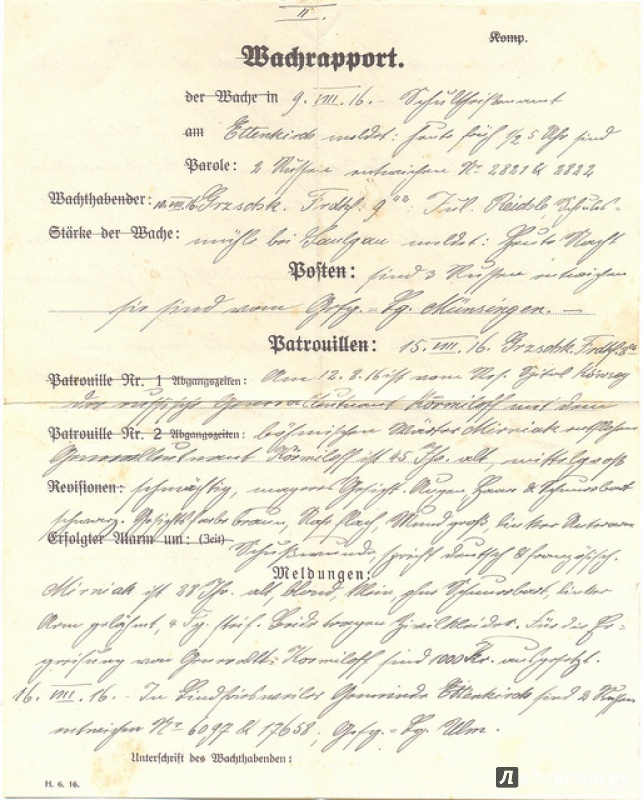 II.
Komp.
Wachrapport.
der Wache in 9. VIII. 16. - Schultheißenamt
am Ettenkirch meldet: heute früh 1/2 5 Uhr sind
Parole: 2 Russen entwichen No 2821 & 2822
Wachthabender: 10. VIII. 16 Grzschk. Frdhf. 9 Jul. Reidele, Schuls-
Stärke der Wache: mühle bei Saulgau meldet: Heute Nacht
Posten: sind 3 Russen entwichen
sie sind vom Gefg.-Lg. Münsingen. -
Patrouillen: 15. VIII. 16. Grzschk. Frdhf.
Patrouille Nr. 1 Abgangszeiten: Am 12. 8. 16 ist vom Res. Spital
der russische General Leutnant Korniloff mit dem
Patrouille Nr. 2 Abgangszeiten: böhmischen Wärter Mirniak entflohen
Generalleutnant Korniloff ist 45 Jhr. alt, mittelgroß
Revisionen: schmächtig, mageres Gesicht. Augen, Haar & Schnurrbart
schwarz. Gesichtsfarbe braun, Nase flach, Mund groß, linker Unterarm
Erfolgter Alarm um: (Zeit) Schußwunde, spricht deutsch & französisch.
Meldungen:
Mirniak ist 28 Jhr. alt, blond, klein, ohne Schnurrbart, linker
Arm gelähmt, 4 Fg. steif. Beide tragen Zivilkleider. Für die Er-
greifung von Generallt. Korniloff sind 1000 Kr. ausgesetzt.
16. VIII. 16. - In Gemeinde Ettenkirch sind 2 Russen
entwichen No 6097 & 17658, Gefg.-Lg. Ulm.
Unterschrift des Wachthabenden:
H. 6. 16.